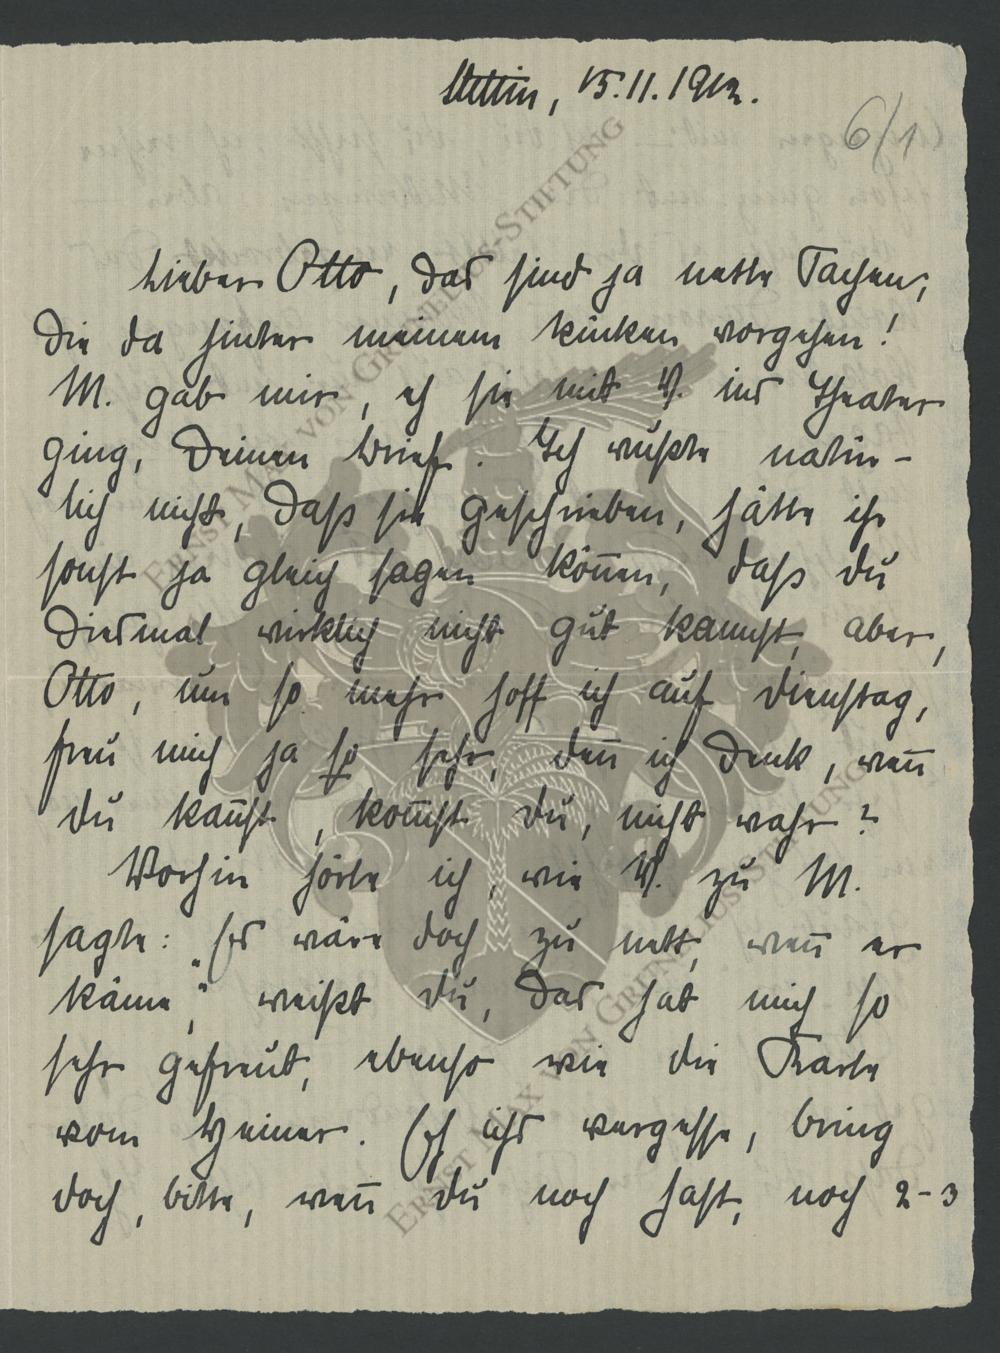 Stettin, 15.11.1912.
6/1
Lieber Otto, das sind ja nette Sachen,
die da hinter meinem Rücken vorgehen!
M. gab mir, eh sie mit V. ins Theater
ging, Deinen Brief. Ich wußte natür-
lich nicht, daß sie geschrieben, hätte ihr
sonst ja gleich sagen koñen, daß du
diesmal wirklich nicht gut kannst, aber,
Otto, um so mehr hoff ich auf Dienstag,
freu mich ja so sehr, deñ ich denk, weñ
du kañst, kom̄st du, nicht wahr?
Vorhin hörte ich, wie V. zu M.
sagte: „Es wäre doch zu nett, weñ er
käme“, weißt du, das hat mich so
sehr gefreut, ebenso wie die Karte
vom Heiner. Eh ichs vergesse, bring
doch, bitte, weñ du noch hast, noch 2-3
ERNST MAX VON GRUNELIUS-STIFTUNG
ERNST MAX VON GRUNELIUS-STIFTUNG